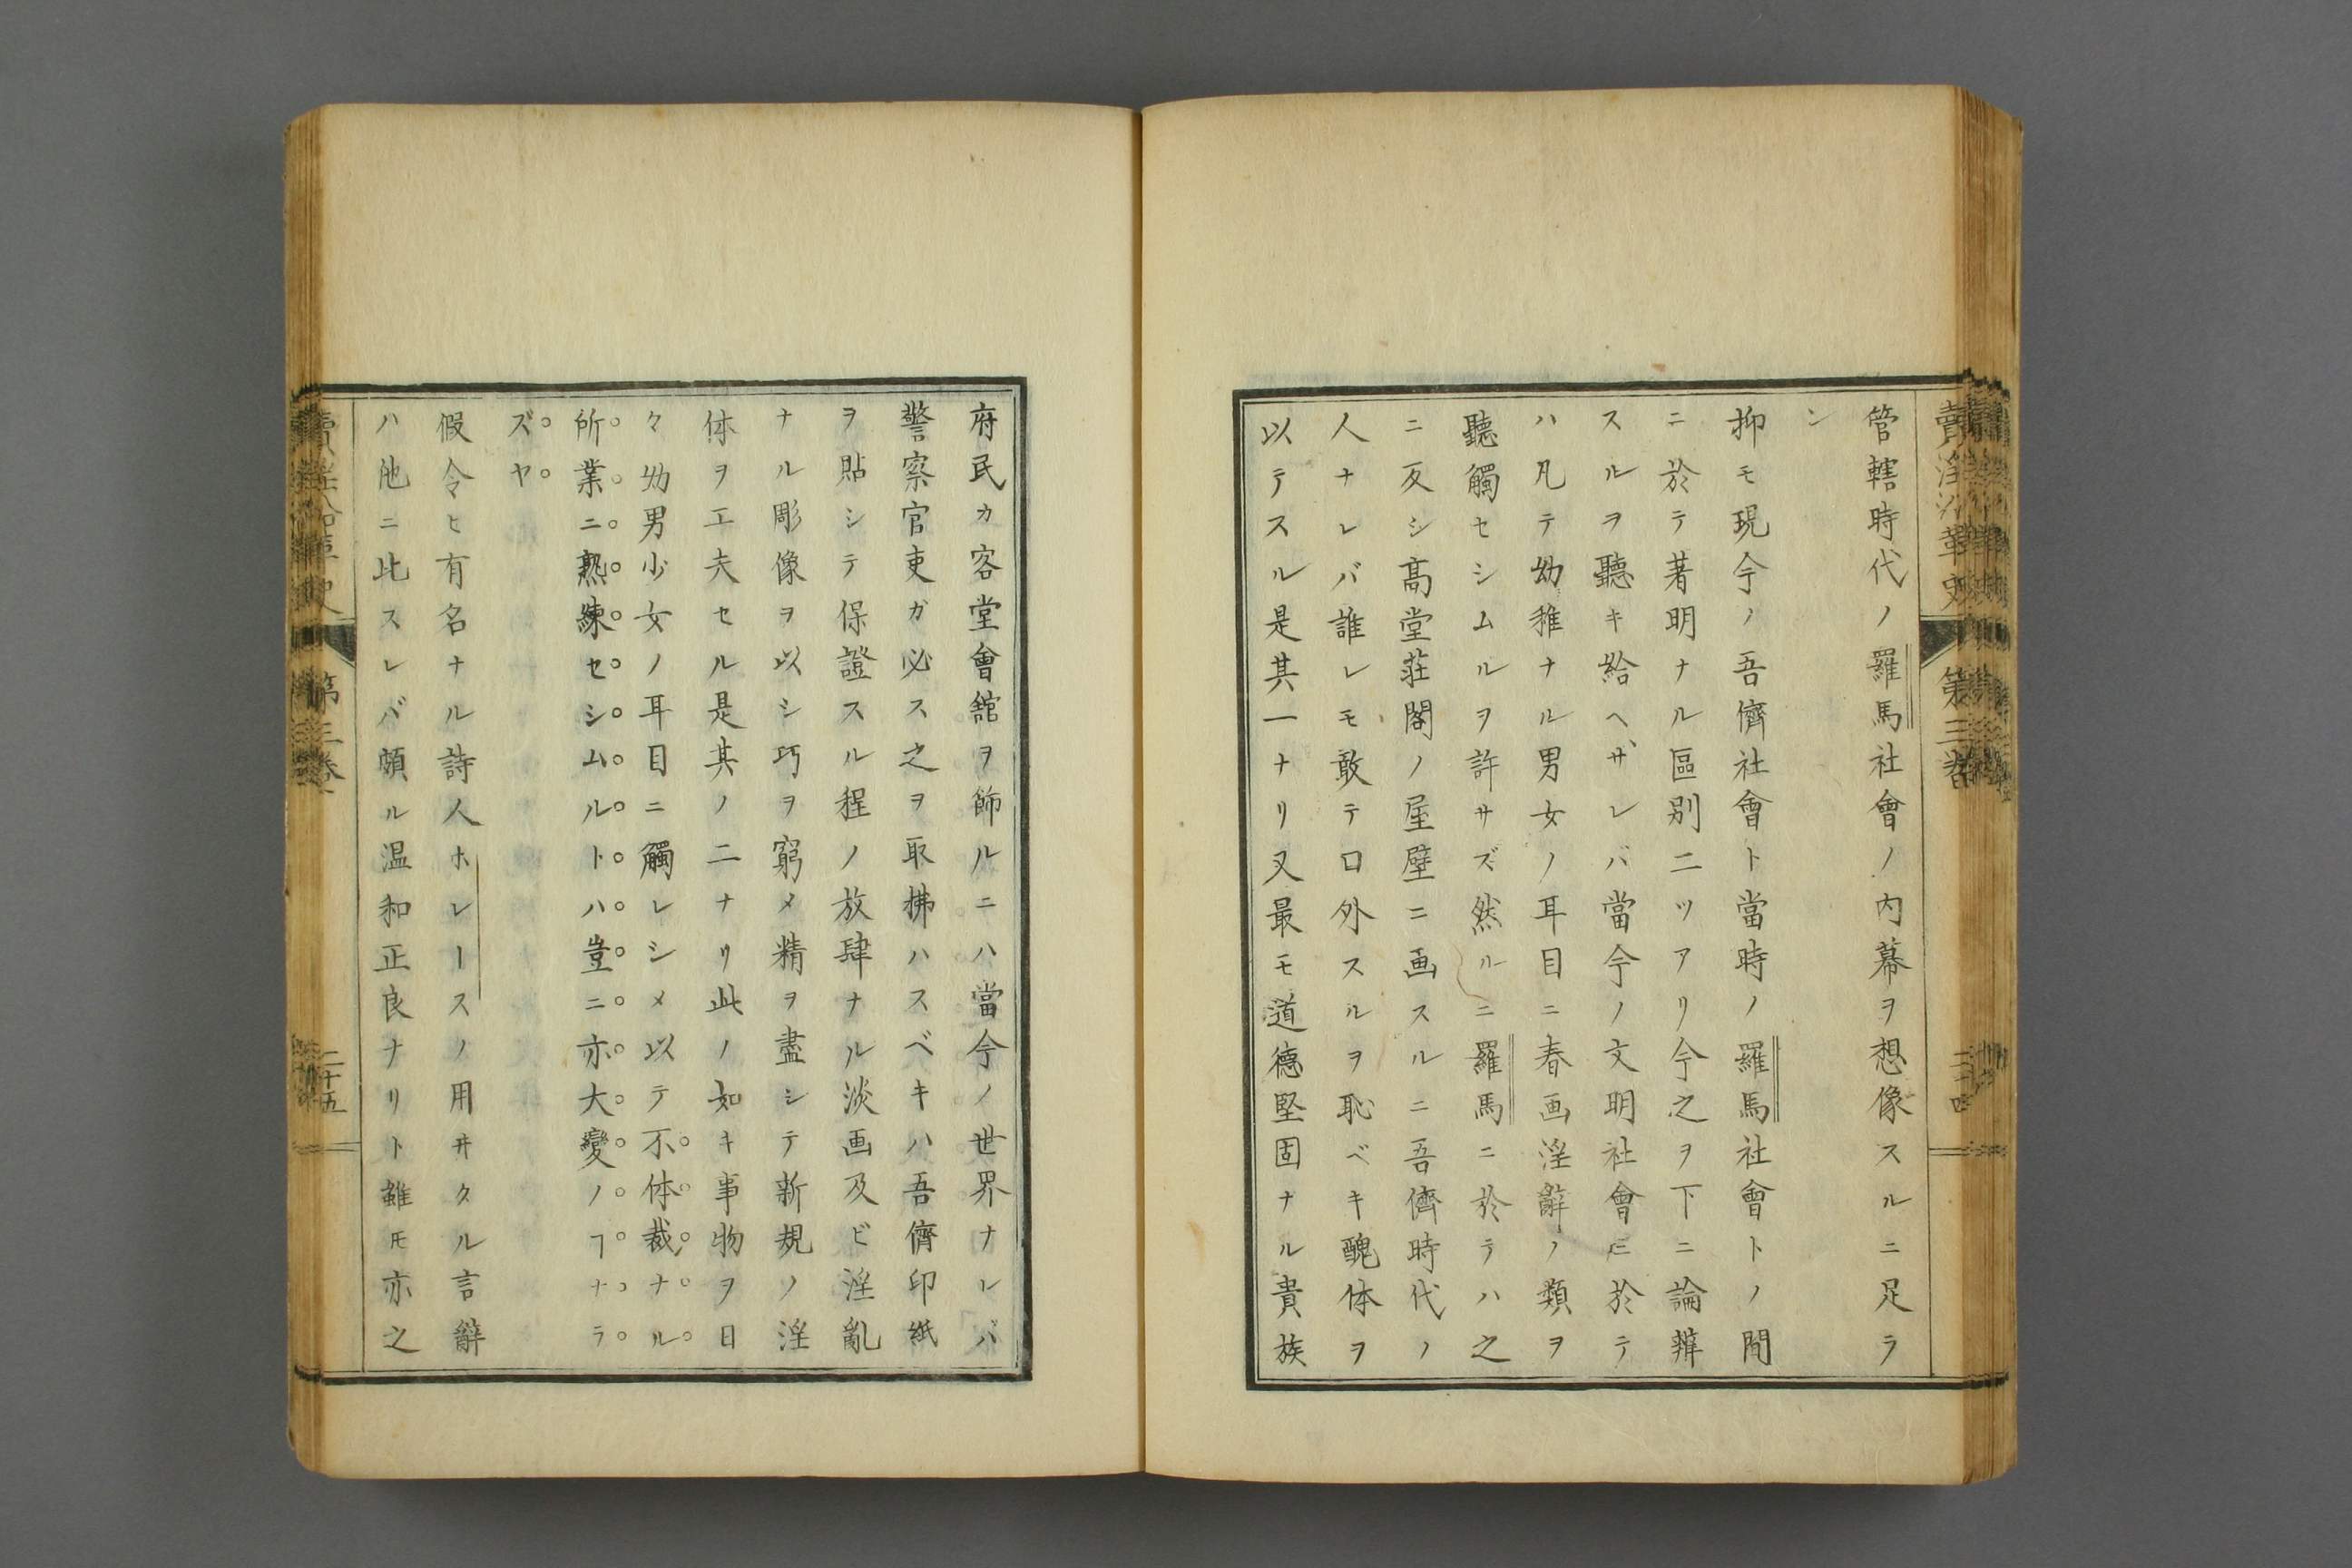 管轄時代ノ羅馬社會ノ内幕ヲ想像スルニ足ラ
ン
抑モ現今ノ吾儕社會ト當時ノ羅馬社會トノ間
ニ於テ著明ナル區別二ツアリ今之ヲ下ニ論辯
スルヲ聽キ給ヘ、サレバ當今ノ文明社會ニ於テ
ハ凡テ幼稚ナル男女ノ耳目ニ春画淫辭ノ類ヲ
聽觸セシムルヲ許サズ然ルニ羅馬ニ於テハ之
ニ反シ高堂荘閣ノ屋壁ニ画スルニ吾儕時代ノ
人ナレバ誰レモ敢テ口外スルヲ恥ベキ醜体ヲ
以テスル是其一ナリ又最モ道徳堅固ナル貴族
府民カ客堂會舘ヲ飾ルニハ當今ノ世界ナレバ
警察官吏ガ必ス之ヲ取拂ハスベキハ吾儕印紙
ヲ貼シテ保證スル程ノ放肆ナル淡画及ビ淫亂
ナル彫像ヲ以シ巧ヲ窮メ精ヲ盡シテ新規ノ淫
体ヲ工夫セル是其ノ二ナリ此ノ如キ事物ヲ日
々幼男少女ノ耳目ニ觸レシメ以テ不体裁ナル
所業ニ熟練セシムルトハ豈ニ亦大變ノヿナラ
ズヤ
假令ヒ有名ナル詩人ホレースノ用井クル言辭
ハ他ニ比スレバ頗ル温和正良ナリト雖モ亦之
第三卷
二十五